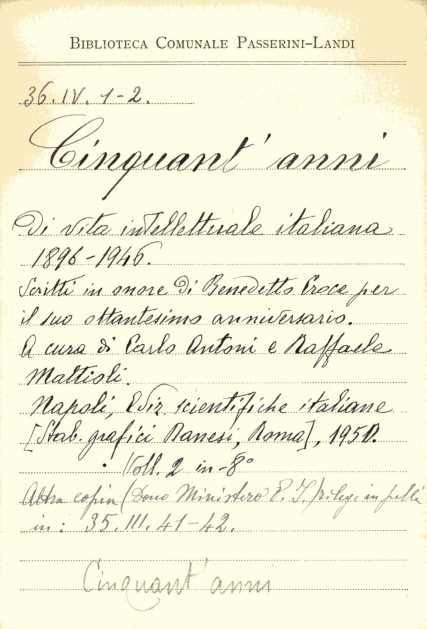 BIBLIOTECA COMUNALE PASSERINI-LANDI
36. IV. 1-2.
Cinquant' anni
Di vita intellettuale italiana
1896-1946.
Scritti in onore di Benedetto Croce per
il suo ottantesimo anniversario.
A cura di Carlo Antoni e Raffaele
Mattioli.
Napoli, Ediz. scientifiche italiane
[Stab. grafici Danesi, Roma], 1950.
Voll. 2 in-8°
Altra copia (Dono Ministero P. I.) rileg. in
in: 35. III. 41-42.
Cinquant' anni